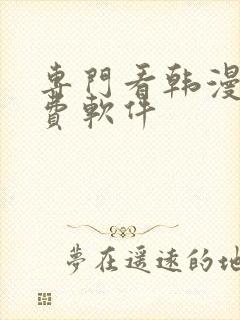 專門看韩漫
費軟件
夢在遥遠的地